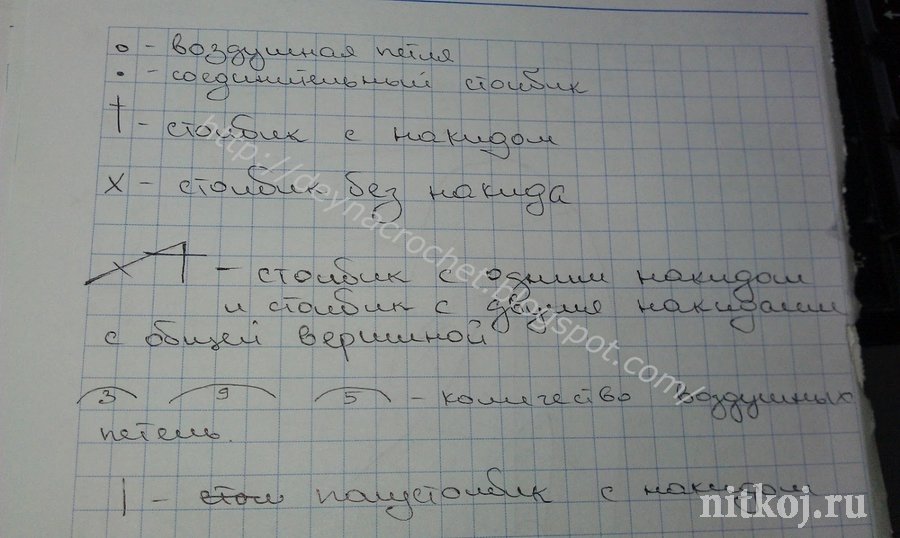 о - воздушная петля
• - соединительный столбик
† - столбик с накидом
х - столбик без накида
- столбик с одним накидом
и столбик с двумя накидами
с общей вершиной
3 9 5 - количество воздушных
петель.
| - стол полустолбик с накидом
http://deynacrochet.blogspot.com/
nitkoj.ru